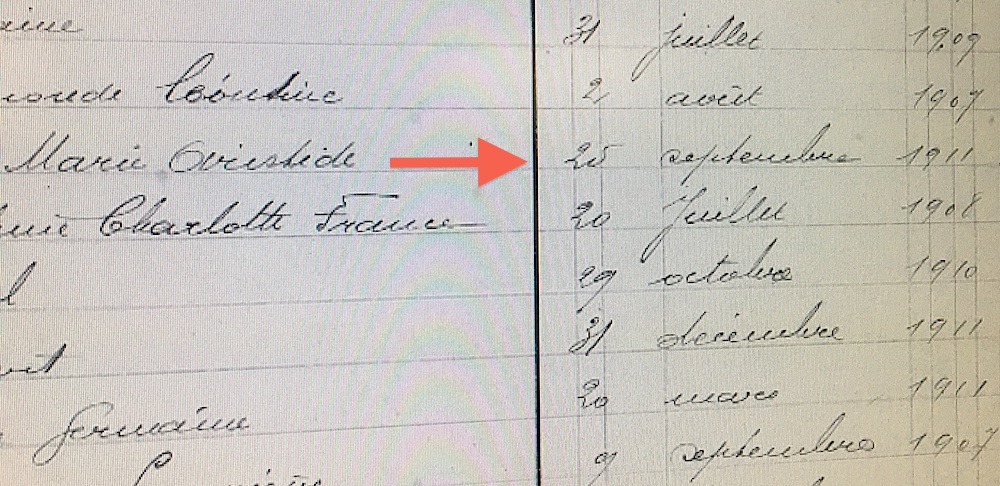 31 juillet 1909
Léontine 2 août 1907
Marie Aristide 25 septembre 1911
Charlotte France 20 Juillet 1908
29 octobre 1910
31 décembre 1911
20 mars 1911
Germaine
9 septembre 1907